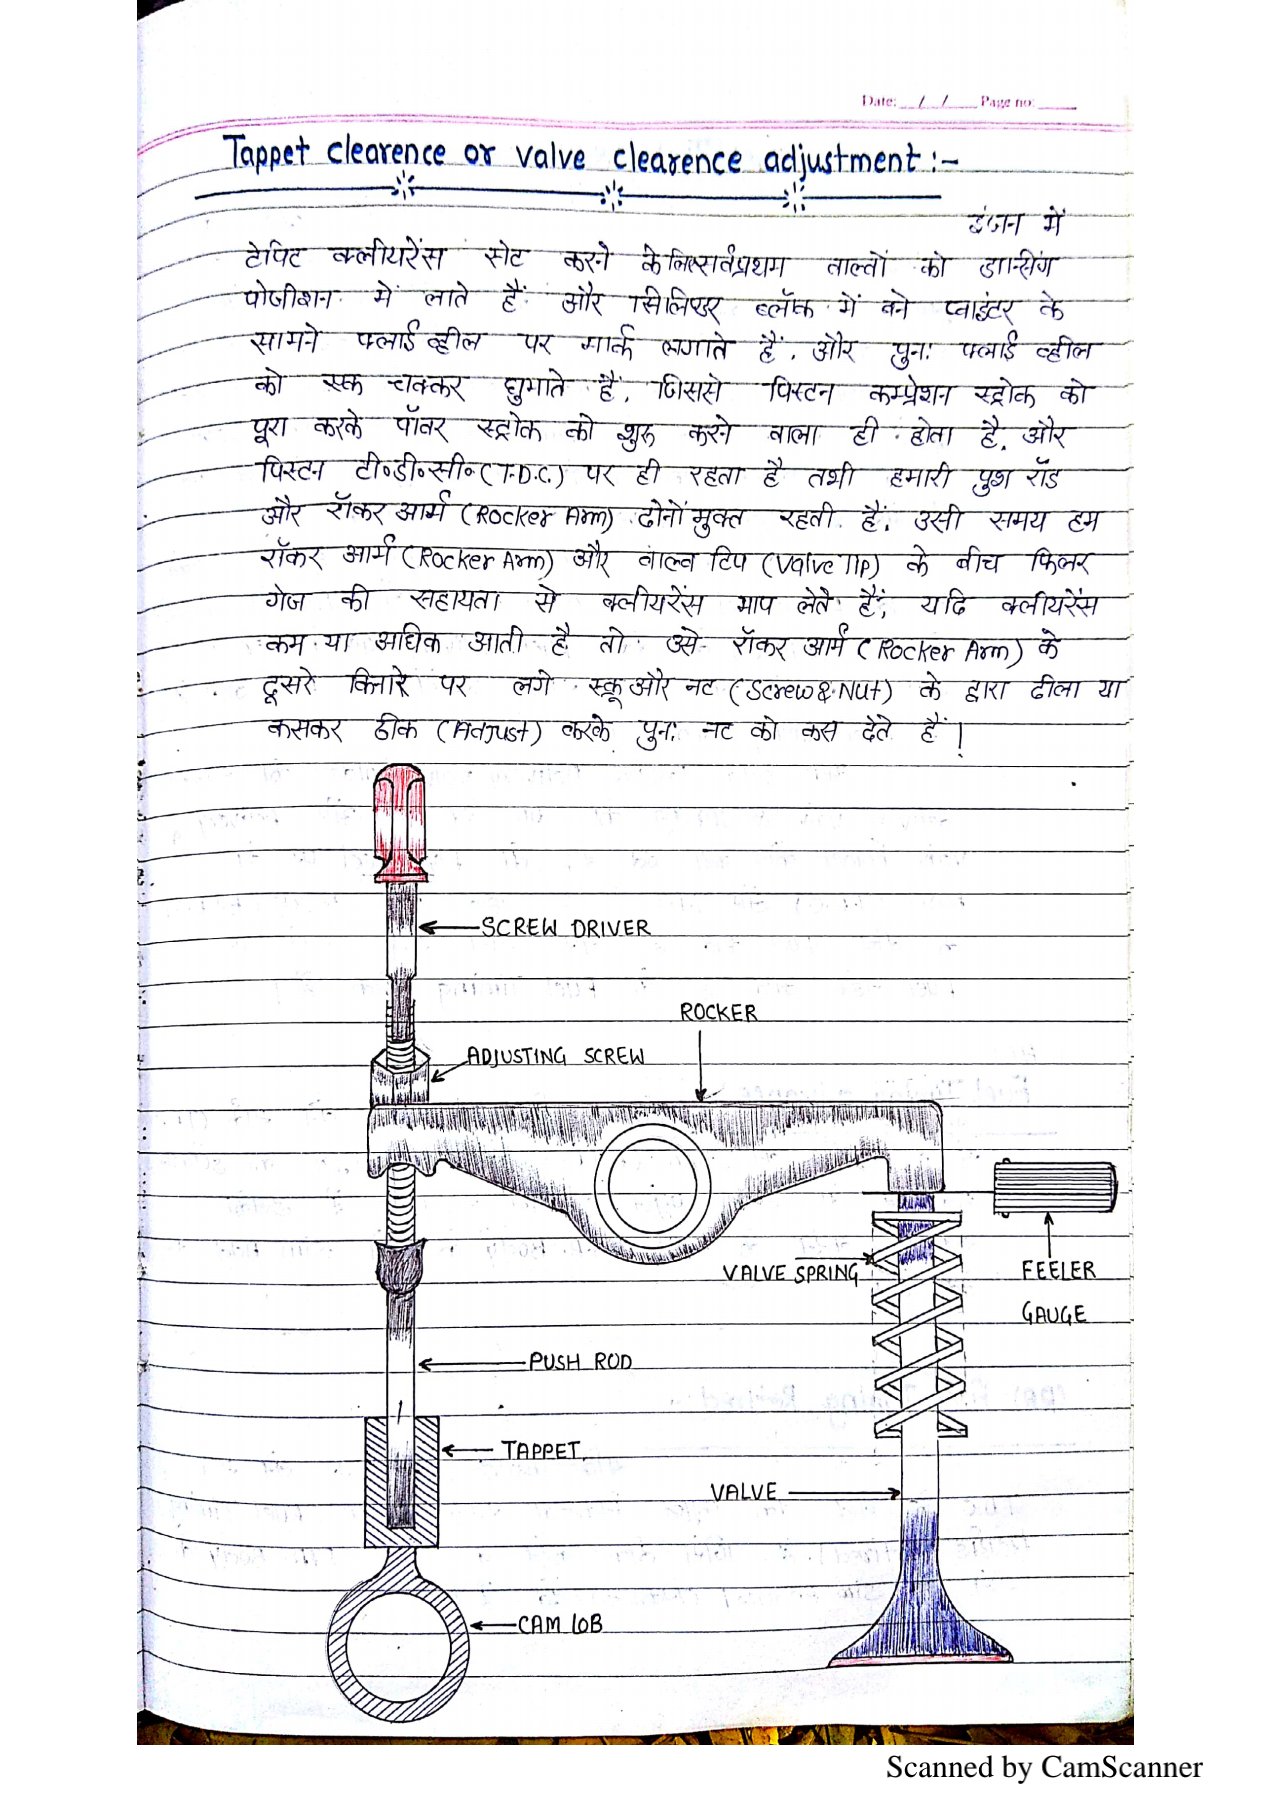 Date: __/__/____ Page no: ______
Tappet clearence or valve clearence adjustment :-
इंजन में
टेपिट क्लीयरेंस सेट करने के लिए सर्वप्रथम वाल्वों को डान्सिंग
पोजीशन में लाते हैं और सिलिण्डर ब्लॉक में बने प्वाइंटर के
सामने फ्लाई व्हील पर मार्क लगाते हैं. और पुनः फ्लाई व्हील
को एक चक्कर घुमाते हैं. जिससे पिस्टन कम्प्रेशन स्ट्रोक को
पूरा करके पॉवर स्ट्रोक को शुरू करने वाला ही होता है. और
पिस्टन टी०डी०सी० (T.D.C.) पर ही रहता है तभी हमारी पुश रॉड
और रॉकर आर्म (Rocker Arm) दोनों मुक्त रहती हैं. उसी समय हम
रॉकर आर्म (Rocker Arm) और वाल्व टिप (Valve Tip) के बीच फिलर
गेज की सहायता से क्लीयरेंस माप लेते हैं, यदि क्लीयरेंस
कम या अधिक आती है तो उसे रॉकर आर्म (Rocker Arm) के
दूसरे किनारे पर लगे स्क्रू और नट (Screw & Nut) के द्वारा ढीला या
कसकर ठीक (Adjust) करके पुनः नट को कस देते हैं |
SCREW DRIVER
ROCKER
ADJUSTING SCREW
VALVE SPRING
FEELER
GAUGE
PUSH ROD
TAPPET
VALVE
CAM LOB
Scanned by CamScanner